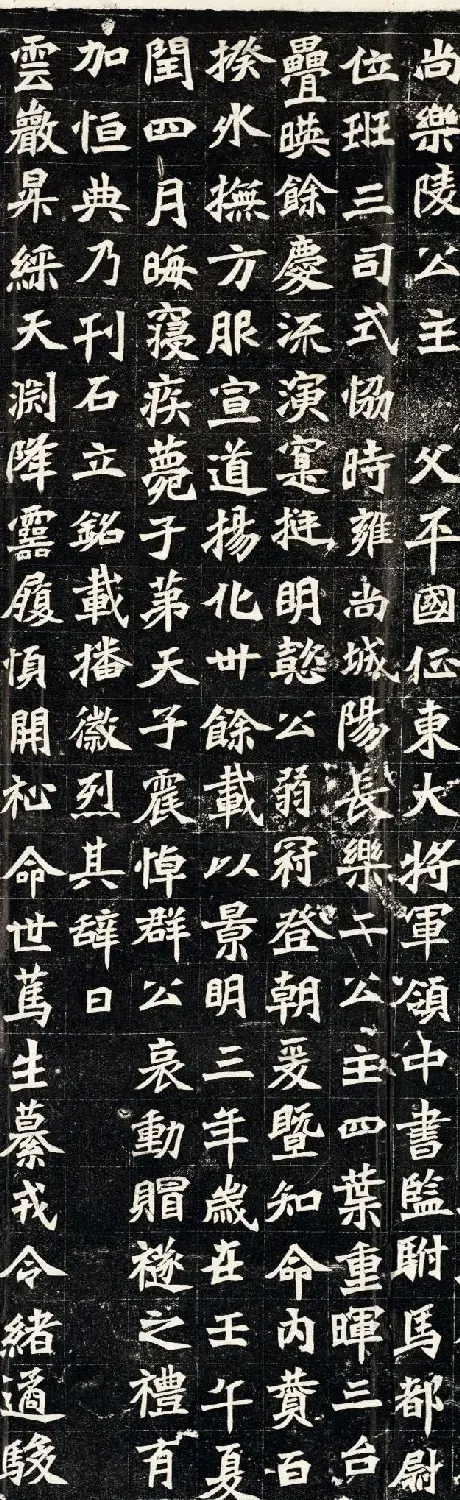 尚樂陵公主　父平國征東大將軍領中書監駙馬都尉
位班三司式恊時雍尚城陽長樂二公主四葉重暉三台
疊暎餘慶流演寔挺明懿公弱冠登朝爰暨知命內贊百
揆外撫方服宣道揚化卅餘載以景明三年歲在壬午夏
閏四月晦寢疾薨于苐天子震悼群公哀動賵禭之禮有
加恒典乃刊石立銘載播徽烈其辭曰
雲巖昇綵天淵降靈履慎開祉命世篤生纂戎令緒遹駿